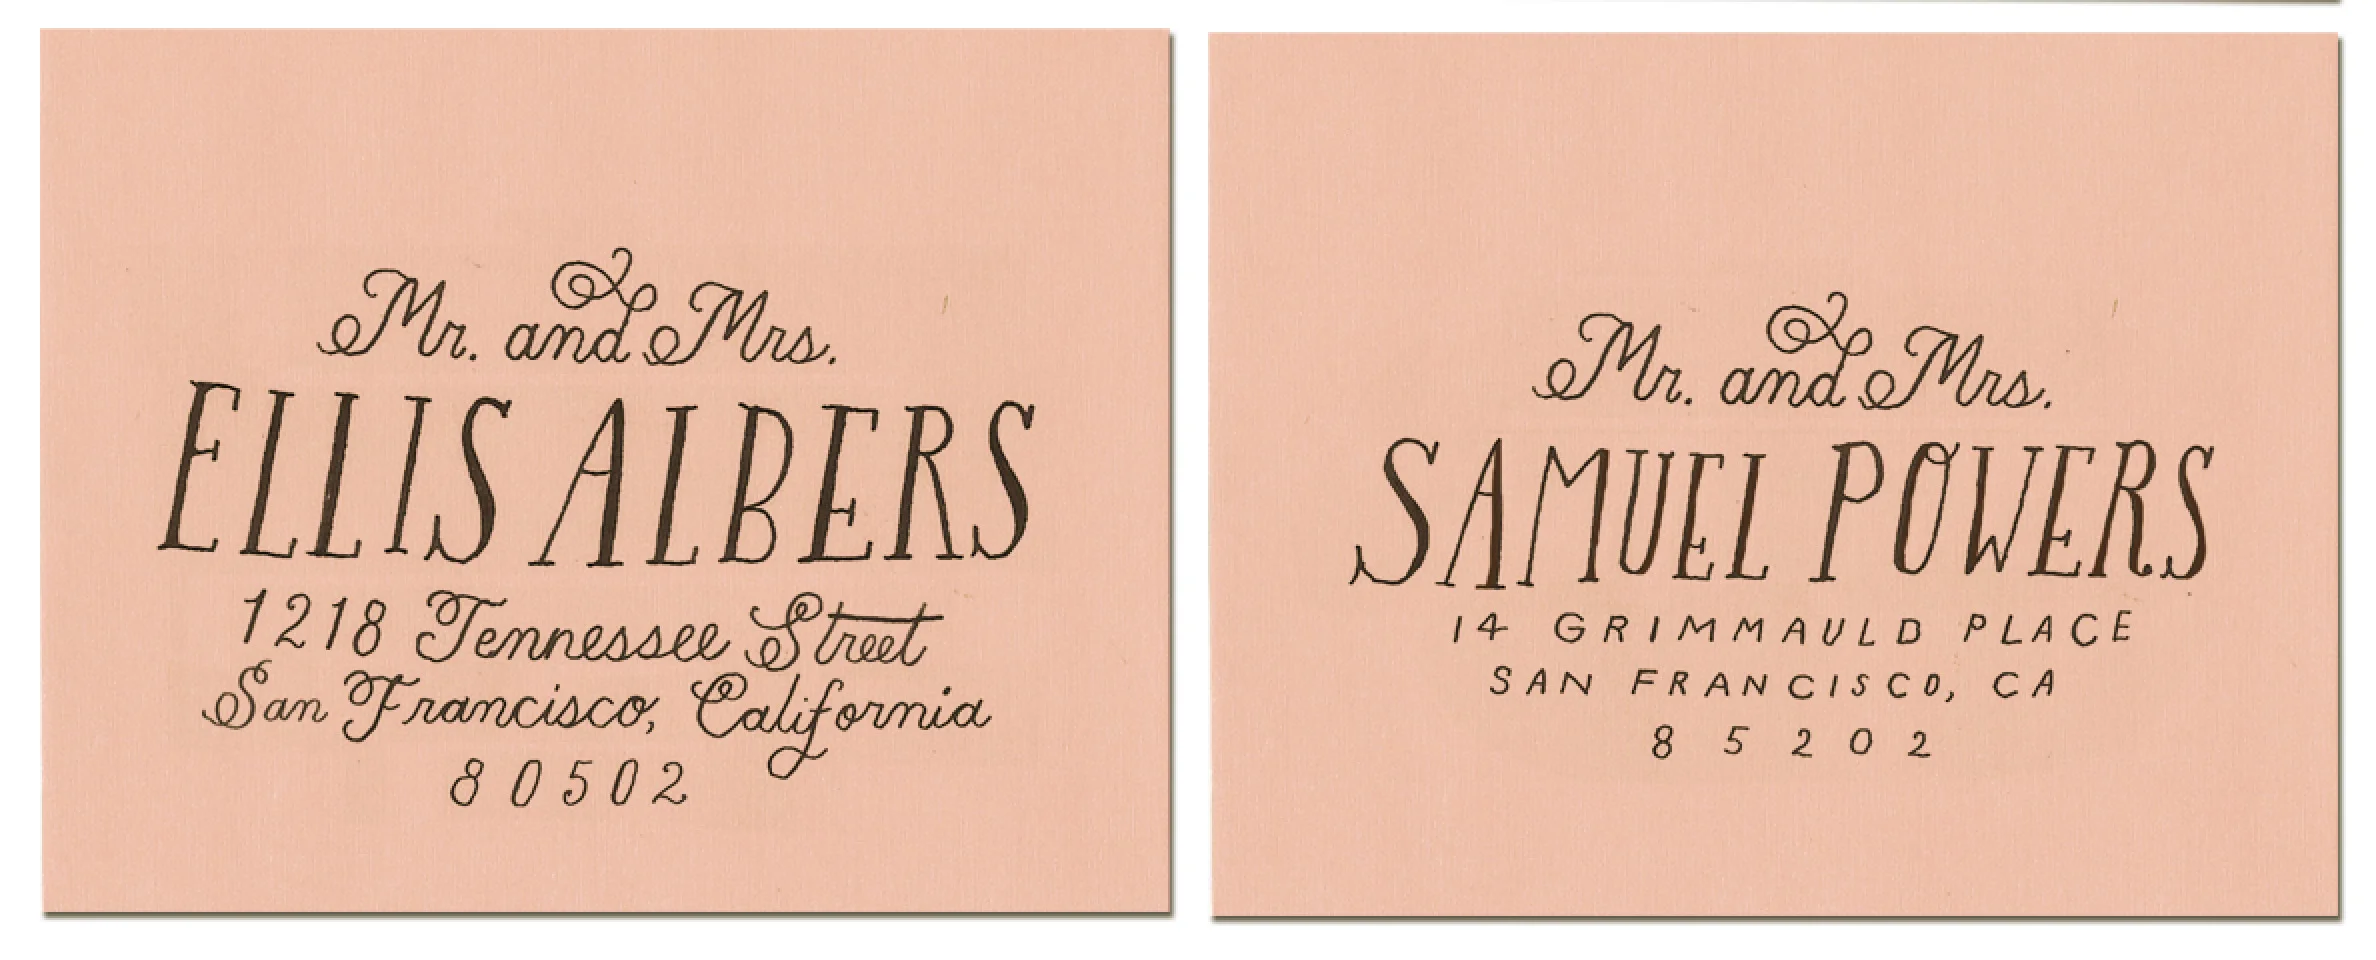 Mr. and Mrs.
ELLIS ALBERS
1218 Tennessee Street
San Francisco, California
80502
Mr. and Mrs.
SAMUEL POWERS
14 GRIMMAULD PLACE
SAN FRANCISCO, CA
85202